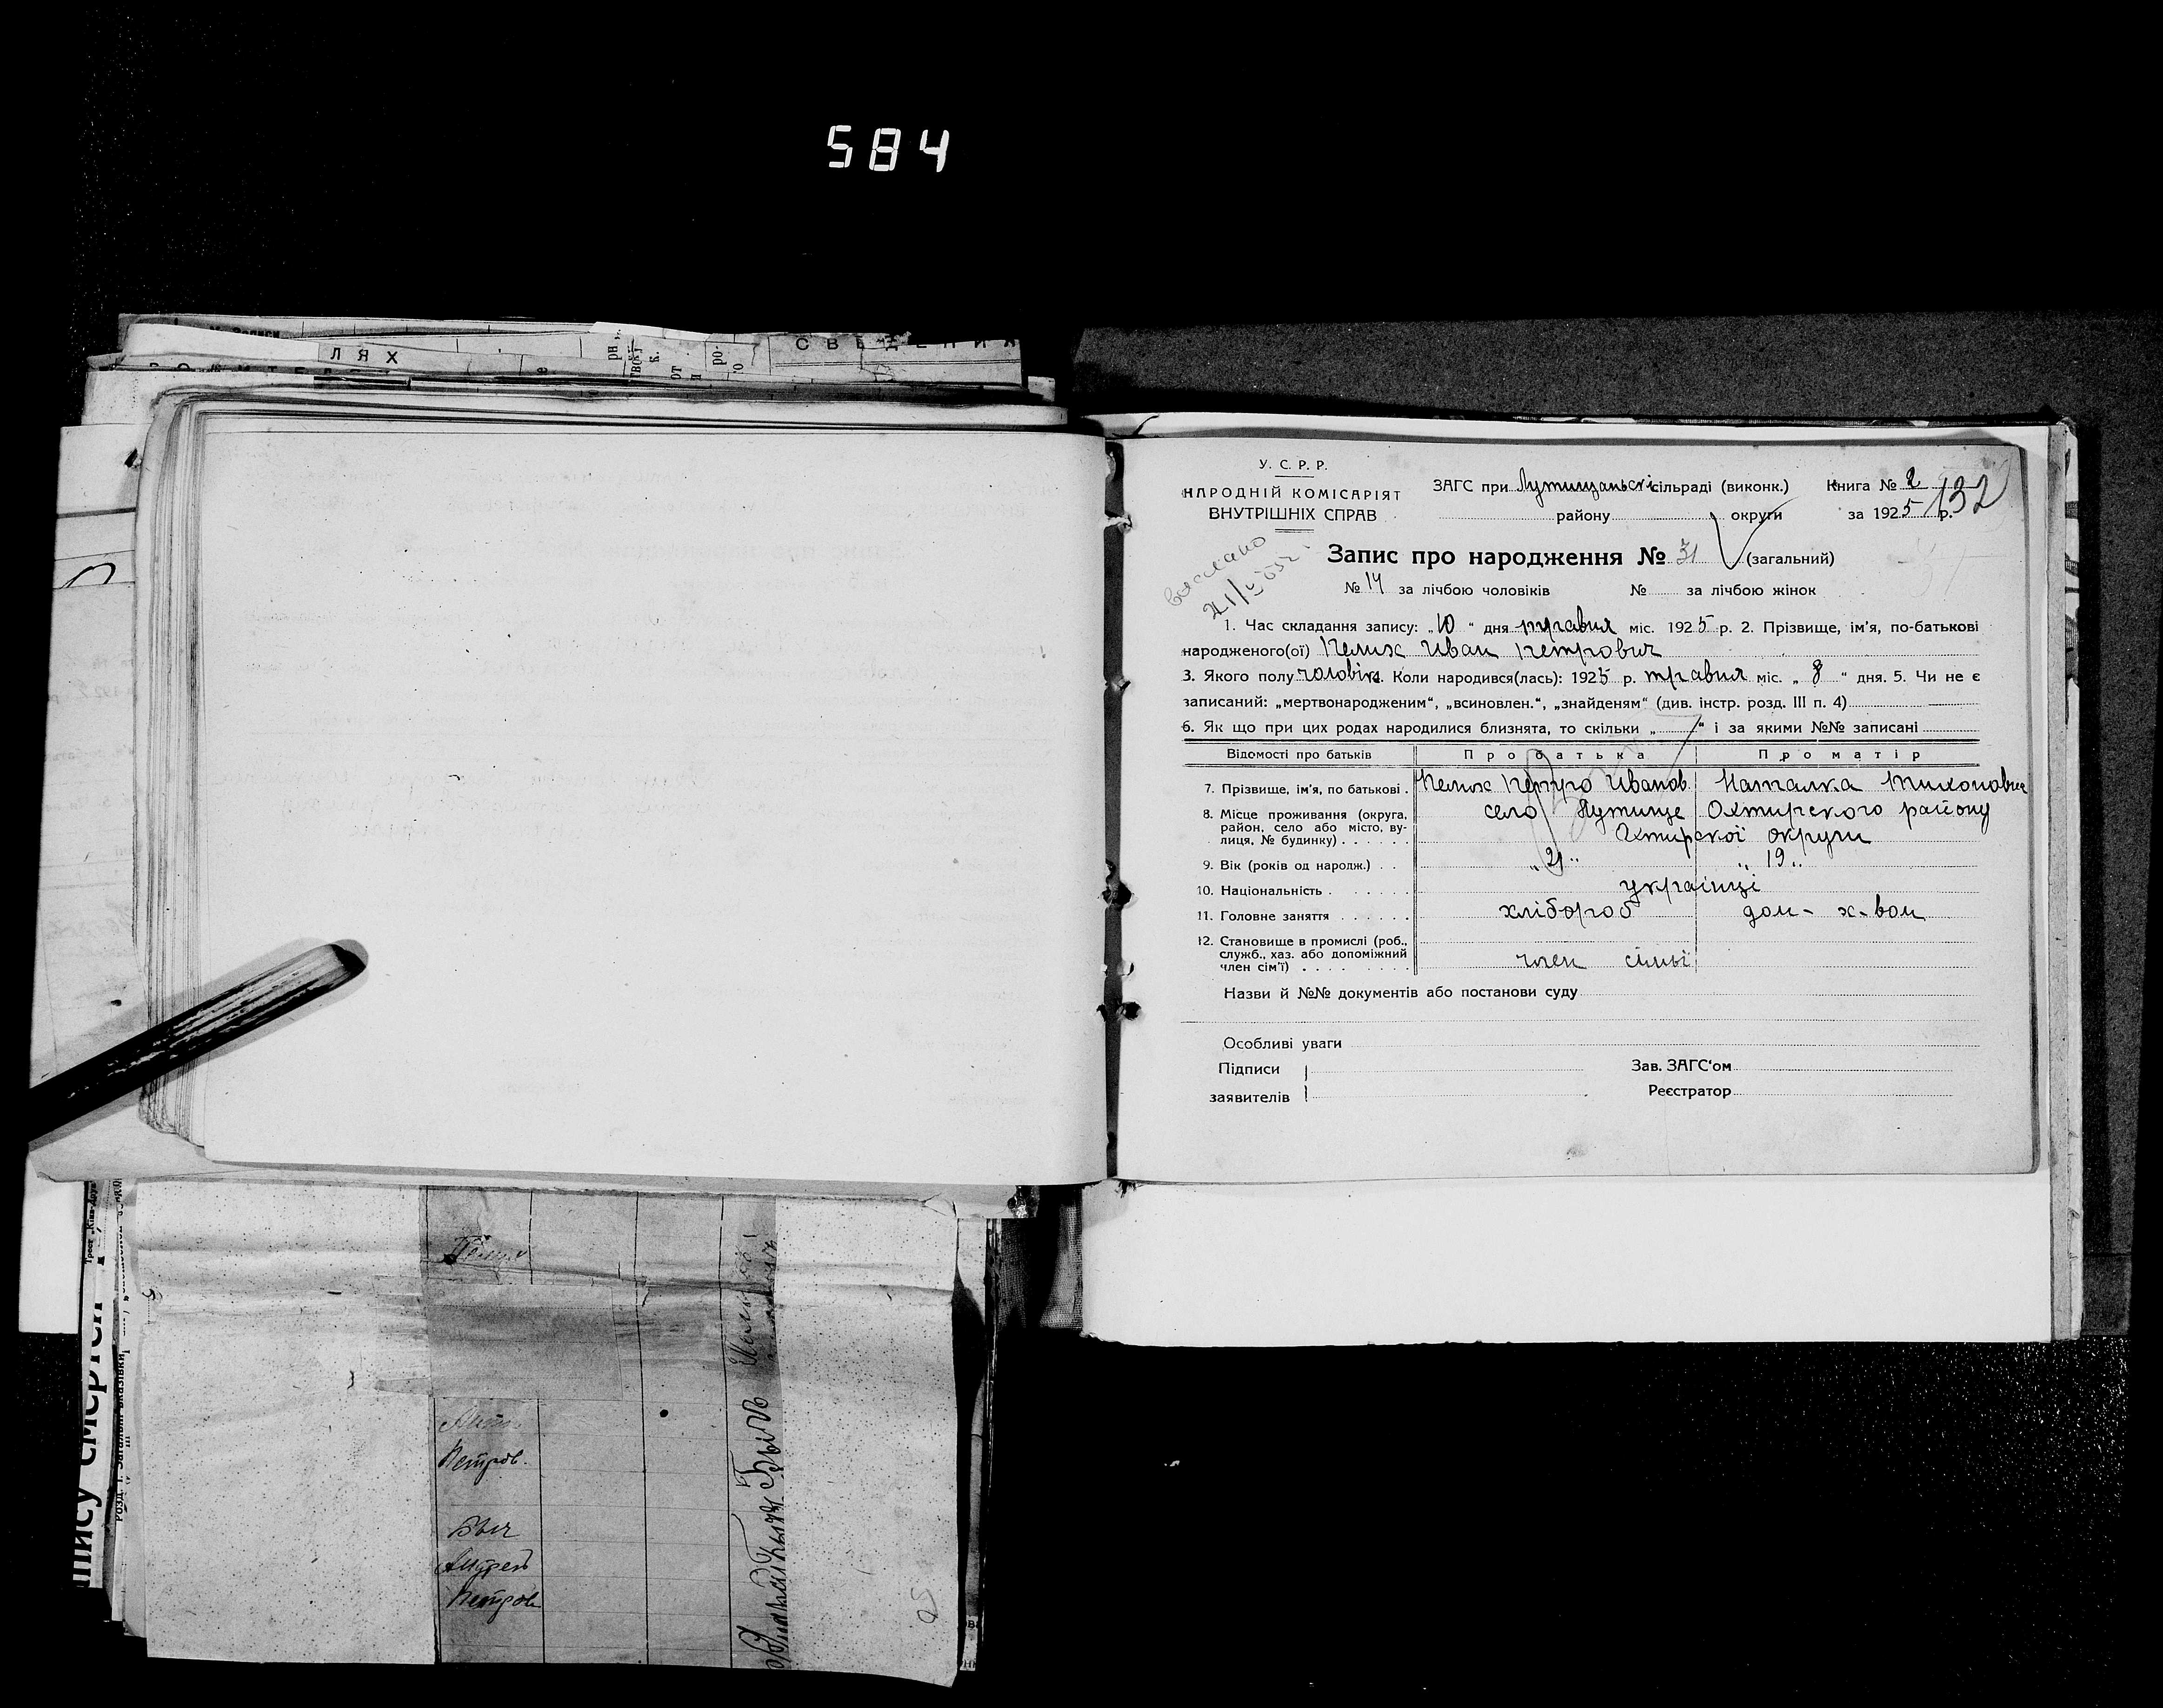 584
У. С. Р. Р.
НАРОДНІЙ КОМІСАРІЯТ
ВНУТРІШНІХ СПРАВ
ЗАГС при Лутищанські сільраді (виконк.)
району округи
Книга № 2
за 1925 р.
132
Запис про народження № 31 (загальний)
№ 14 за лічбою чоловіків № за лічбою жінок
1. Час складання запису: „10“ дня травня міс. 1925 р. 2. Прізвище, ім'я, по-батькові
народженого(ої) Пелих Иван Петрович
3. Якого полу чоловік. Коли народився(лась): 1925 р. травня міс. „8“ дня. 5. Чи не є
записаний: „мертвонародженим“, „всиновлен.“, „знайденям“ (див. інстр. розд. III п. 4)
6. Як що при цих родах народилися близнята, то скільки „ “ і за якими №№ записані
Відомості про батьків Про батька Про матір
7. Прізвище, ім'я, по батькові . Пелих Петро Иванов Наталка Тихоновна
8. Місце проживання (округа, село Лутище Охтирского району
район, село або місто, ву-
лиця, № будинку) . . . . . . Охтирскої округи
9. Вік (років од народж.) . . „21„ „19„
10. Національність . . . . . . українці
11. Головне заняття . . . . . . хлібороб дом- х-вом
12. Становище в промислі (роб.,
служб., хаз. або допоміжний
член сім'ї) . . . . . . . . член сімьї
Назви й №№ документів або постанови суду
Особливі уваги
Підписи
заявителів
Зав. ЗАГС'ом
Реєстратор
ЛЯХ
СВЕДЕНИЯ
Петров.
Андрей
Петров